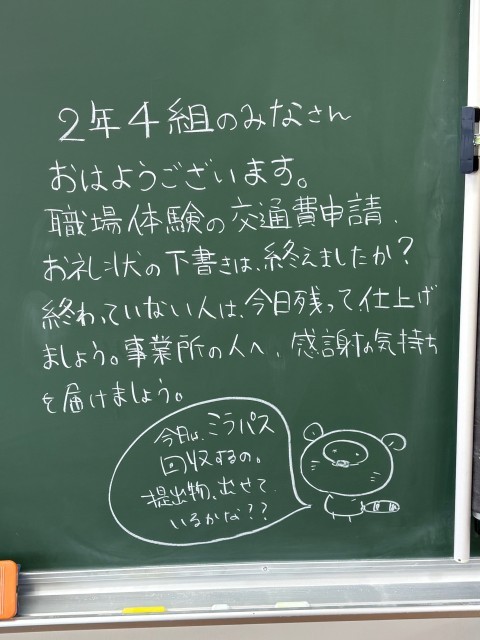 2年4組のみなさん
おはようございます。
職場体験の交通費申請、
お礼状の下書きは、終えましたか?
終わっていない人は、今日残って、仕上げ
ましょう。事業所の人へ、感謝な気持ち
を届けましょう。
今日は、ミラパス
回収するの。
提出物、出せて
いるかな??